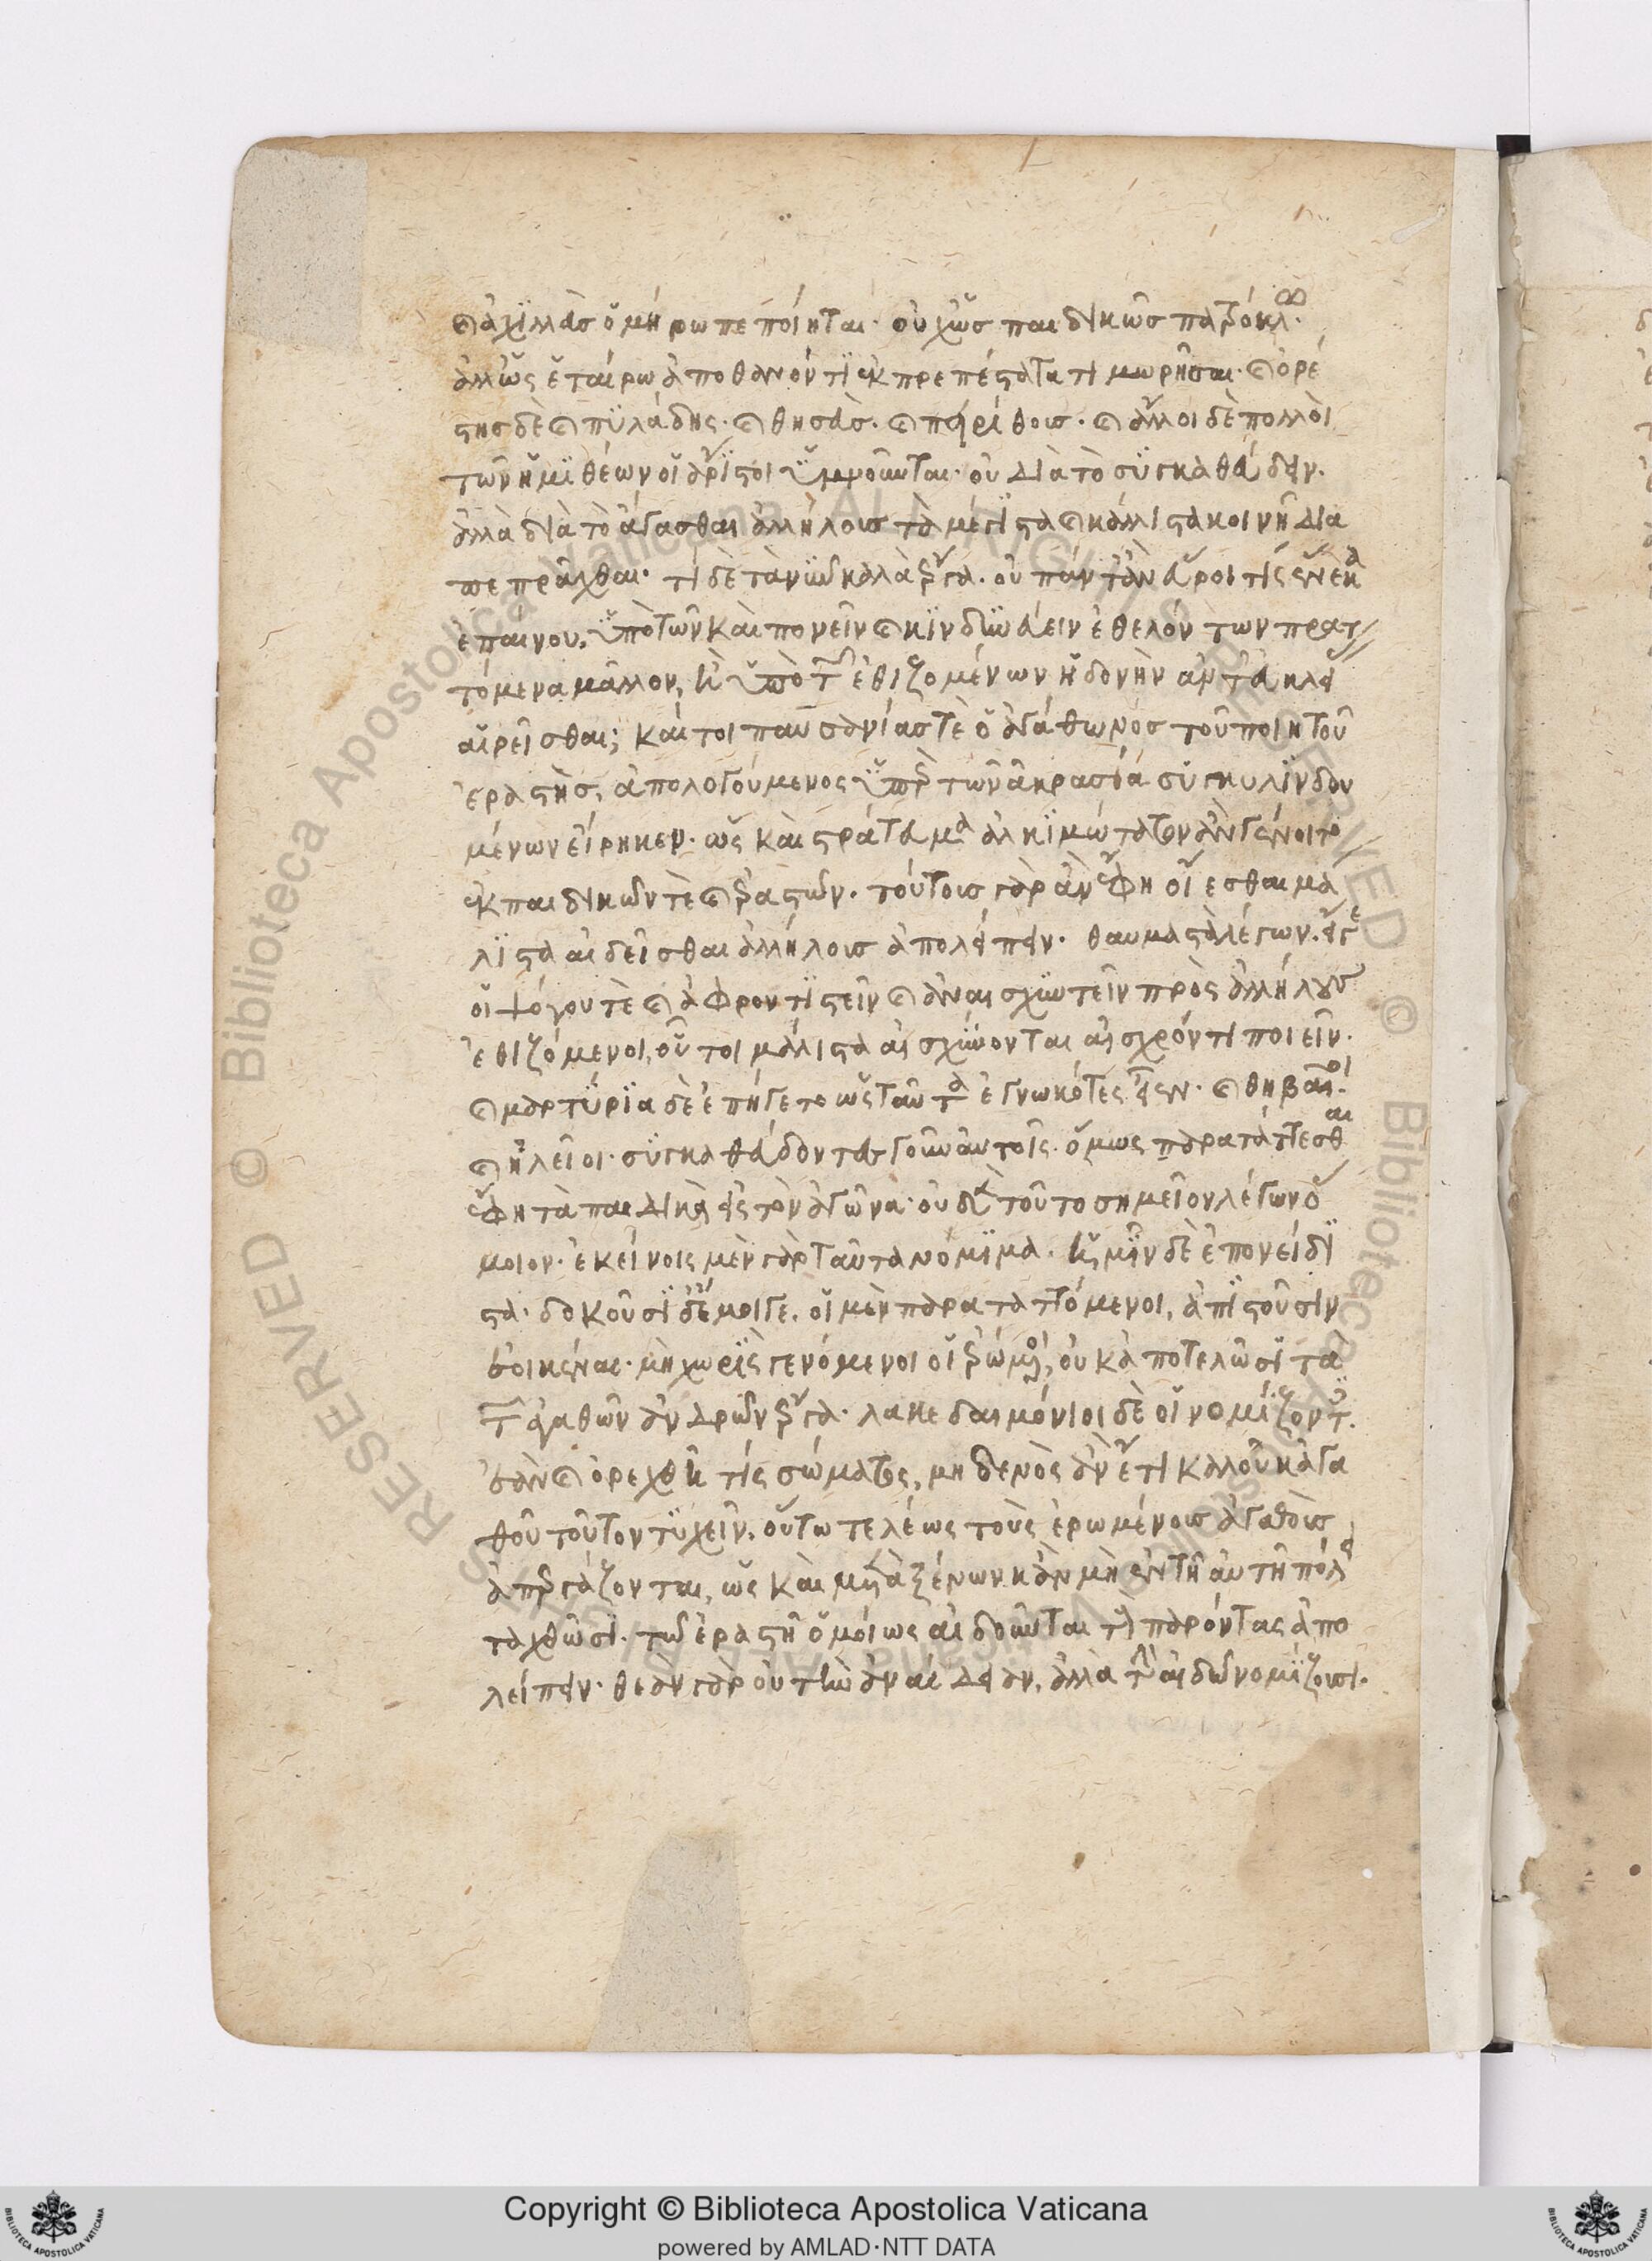 καὶ ἀχιλλεὺς ὁμήρω πεποίηται· οὐχ ὡς παιδικοῖς πατρόκλω·
ἀλλ' ὡς ἑταίρω ἀποθανόντι ἐκπρεπέστατα τιμωρῆσαι· καὶ ὀρέ
στης δὲ καὶ πυλάδης· καὶ θησεὺς· καὶ πειρίθους· καὶ ἄλλοι δὲ πολλοὶ
τῶν ἡμιθέων οἱ ἄριστοι ὑμνοῦνται· οὐ διὰ τὸ συγκαθεύδειν·
ἀλλὰ διὰ τὸ ἄγασθαι ἀλλήλους τὰ μέγιστα καὶ κάλλιστα κοινῆ δια
πεπρᾶχθαι· τί δὲ τὰ νῦν καλὰ ἔργα· οὐ πάντ' ἂν εὕροι τίς ἕνεκα
ἐπαίνου, ὑπὸ τῶν καὶ πονεῖν καὶ κινδυνεύειν ἐθελόντων πρατ
τόμενα μᾶλλον, ἢ ὑπὸ τῶν ἐθιζομένων ἡδονὴν ἀντ' εὐκλεί
αἱρεῖσθαι; καίτοι παυσανίας τὲ ὁ ἀγάθωνος τοῦ ποιητοῦ
ἐραστὴς, ἀπολογούμενος ὑπὲρ τῶν ἀκρασία συγκυλινδου
μένων εἴρηκεν· ὡς καὶ στράτευμα ἀλκιμώτατον ἂν γένοιτο
ἐκ παιδικῶν τὲ καὶ ἐραστῶν· τούτους γὰρ ἂν ἔφη οἴεσθαι μά
λιστα αἰδεῖσθαι ἀλλήλους ἀπολείπειν· θαυμαστὰ λέγων· εἴγε
οἱ ψόγου τὲ καὶ ἀφροντιστεῖν καὶ ἀναισχυντεῖν πρὸς ἀλλήλους
ἐθιζόμενοι, οὗτοι μάλιστα αἰσχύνονται αἰσχρόν τι ποιεῖν·
καὶ μαρτύρια δὲ ἐπήγετο ὡς ταῦτα ἐγνωκότες εἶεν· καὶ θηβαῖοι·
καὶ ἠλεῖοι· συγκαθεύδοντας γοῦν αὐτοῖς· ὅμως παρατάττεσθαι
ἔφη τὰ παιδικὰ εἰς τὸν ἀγῶνα· οὐδὲν τοῦτο σημεῖον λέγων ὅ
μοιον· ἐκείνοις μὲν γὰρ ταῦτα νόμιμα· ἡμῖν δὲ ἐπονείδι
στα· δοκοῦσι δ' ἔμοιγε, οἱ μὲν παρατατtόμενοι, ἀπιστοῦσιν
ἐοικέναι· μὴ χωρὶς γενόμενοι οἱ ἐρώμενοι, οὐκ ἀποτελῶσι τὰ
τῶν ἀγαθῶν ἀνδρῶν ἔργα· λακεδαιμόνιοι δὲ οἱ νομίζοντες·
ἐὰν καὶ ὀρεχθῆ τίς σώματος, μηδενὸς ἂν ἔτι καλοῦ κἀγα
θοῦ τοῦτον τυχεῖν, οὕτω τελέως τοὺς ἐρωμένους ἀγαθοὺς
ἀπεργάζονται, ὡς καὶ μετὰ ξένων κἂν μὴ ἐν τῆ αὐτῆ πόλει
ταχθῶσι· τῶ ἐραστῆ ὁμοίως αἰδοῦνται τοὺς παρόντας ἀπο
λείπειν· θεὰν γὰρ οὐ τὴν ἀναίδειαν, ἀλλὰ τὴν αἰδῶ νομίζουσι·
Copyright © Biblioteca Apostolica Vaticana
powered by AMLAD·NTT DATA